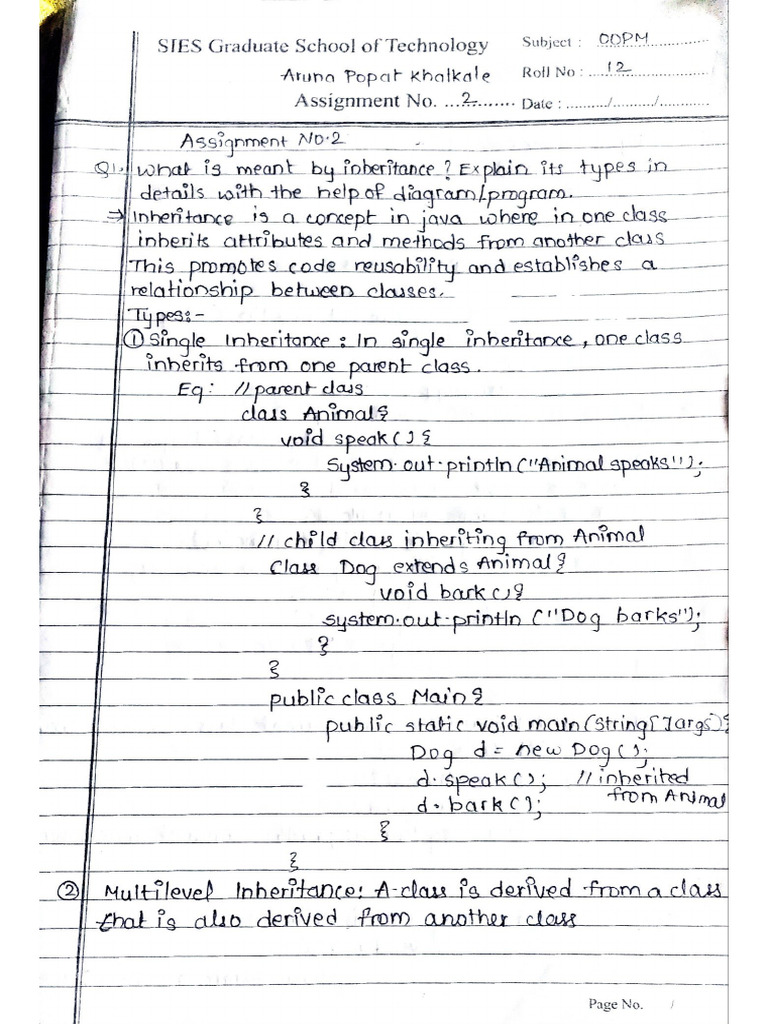 SIES Graduate School of Technology
Subject : OOPM
Aruna Popat Khalkale
Roll No : 12
Assignment No. ...2........
Date : ........../........../..........
Assignment No.2
Q1. What is meant by inheritance? Explain its types in
details with the help of diagram/program.
⇒ Inheritance is a concept in java where in one class
inherits attributes and methods from another class
This promotes code reusability and establishes a
relationship between classes.
Types:-
① Single Inheritance: In single inheritance, one class
inherits from one parent class.
Eg: // parent class
class Animal{
void speak() {
System.out.println("Animal speaks");
}
}
// child class inheriting from Animal
Class Dog extends Animal{
void bark(){
system.out.println ("Dog barks");
}
}
public class Main{
public static void main(String[]args){
Dog d = new Dog();
d.speak(); // inherited
from Animal
d.bark();
}
}
② Multilevel Inheritance: A class is derived from a class
that is also derived from another class
Page No.